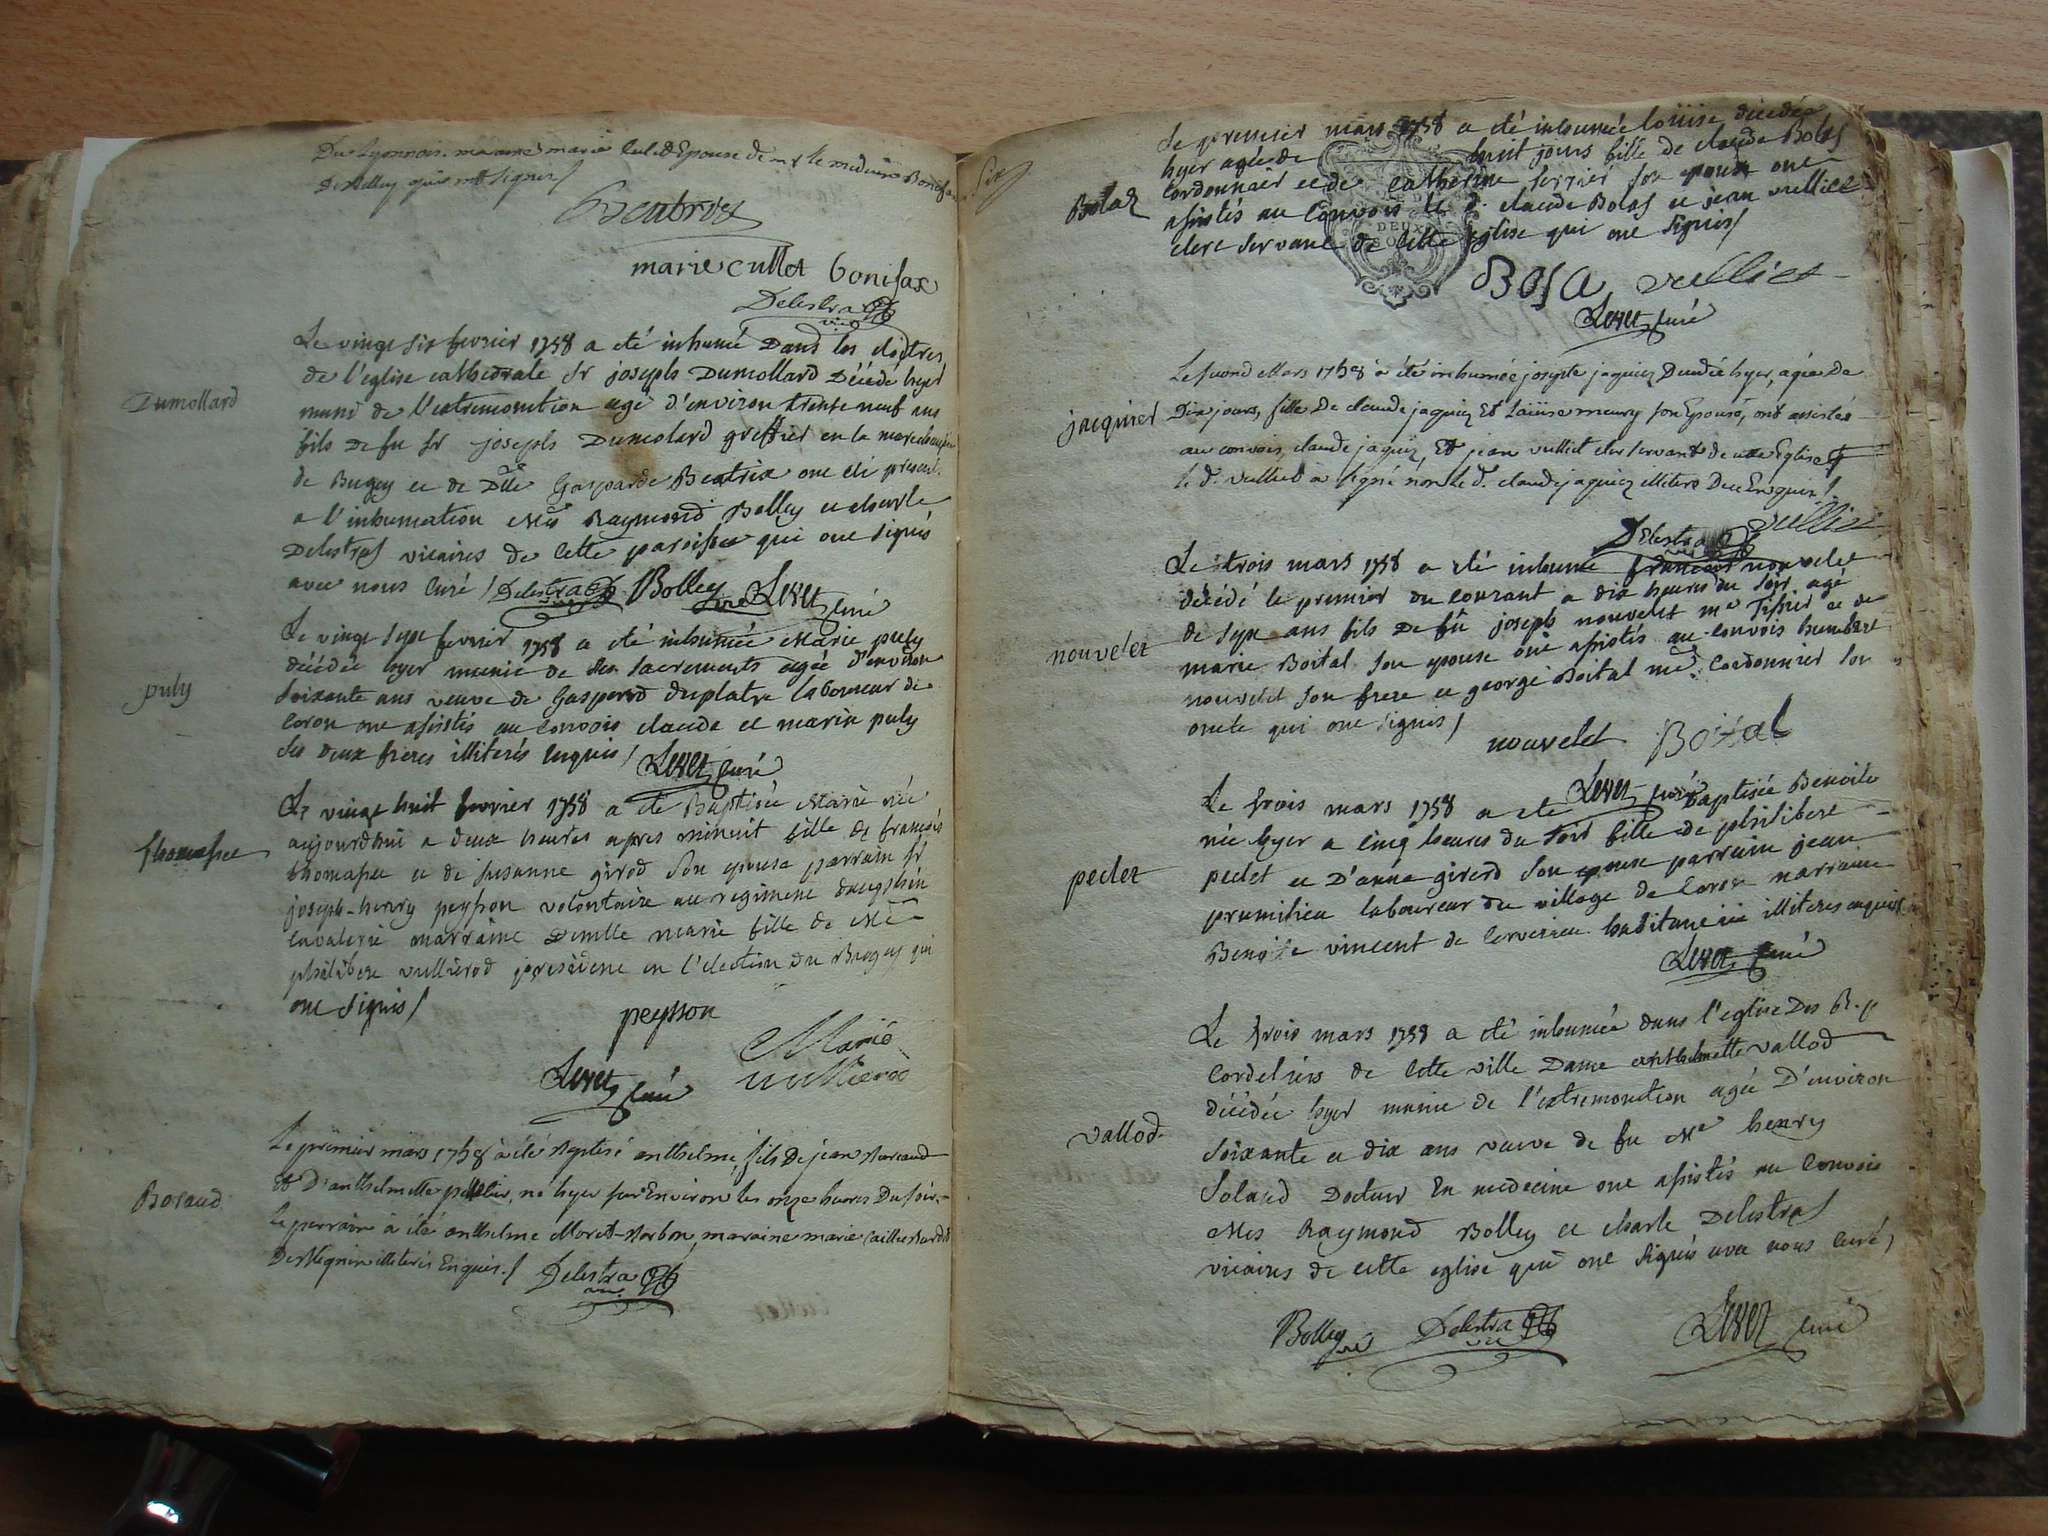 Du Lyonnois. maraine marie Culet Epouse de mr le medecin Bonifax
De Belley qui ont signes /
marie cullet bonifax
Delestra
vic
Dumollard
Le vingt six fevrier 1758 a eté inhumé Dans les cloitres
de l'eglise cathedrale Sr joseph Dumollard Décédé hyer
muni de l'extremonction agé d'environ trente neuf ans
fils de fu Sr joseph Dumolard greffier en la
de Bugey et de Dlle Gasparde Beatrix ont eté present
a l'inhumation Mes Raymond Bolley et charle
Delestras vicaires de cette paroisse qui ont signés
avec nous curé / Delestra Bolley vic Levet curé
puly
Le vingt sept fevrier 1758 a eté inhumée Marie puly
décédée hyer munie de ses sacrements agée d'environ
soixante ans veuve de Gaspard duplatre laboureur de
coron ont assistés au convois claude et marin puly
ses deux freres illiterés enquis / Levet curé
thomasset
Le vingt huit fevrier 1758 a eté Baptisée Marie née
aujourdhui a deux heures apres minuit fille de françois
thomasset et de susanne girod son epouse parrain Sr
joseph-henry peysson volontaire au regiment dauphin
cavalerie marraine Demlle marie fille de Me
philibert vullierod president en l'election du Bugey qui
ont signés /
peysson
Levet curé
Marie
vullierod
Boraud
Le premier mars 1758 à été Baptisé anthelme, fils De jean
Et D'anthelmette né hyer sur Environ les onze heures Du soir
Le parrain à été anthelme maraine marie
illiterés Enquis. / Delestra
vic
Six
Bolas
Le premier mars 1758 a eté inhumée loüise décédée
hyer agée de huit jours fille de claude Bolas
cordonnier et de catherine son epouse ont
assistés au convois le d. claude Bolas et jean vulliet
clerc servant de cette eglise qui ont signés /
DEUX
SOLS
BOSA vulliet
Levet curé
jacquier
Le second Mars 1758 à été inhumée josephte jaquiez Decedée hyer, agée de
Dix jours, fille De claude jaquiez Et Loüise meury son Epouse, ont assistés
au convois, claude jaquiez, Et jean vulliet clerc servant de cette Eglise
le d. vulliet a signé non le d. claude jaquiez illiteré De ce Enquis /
Delestra vulliet
nouvelet
Le trois mars 1758 a eté inhumé françois nouvelet
décédé le premier du courant a dix heures du soir agé
de sept ans fils de fû joseph nouvelet me Tissier et de
marie Boital son epouse ont assistés au convois humbert
nouvelet son frere et george Boital me. Cordonnier son
oncle qui ont signés /
nouvelet Boital
Levet curé
peclet
Le trois mars 1758 a eté baptisée Benoite
née hyer a cinq heures du soir fille de philibert
peclet et D'anne girerd son epouse parrain jean
prumilieu laboureur du village de coron marraine
Benoite vincent de Cerverieu habitante ici illiteres enquis
Levet curé
vallod
Le trois mars 1758 a eté inhumée dans l'eglise Des R. p
Cordeliers de cette ville Dame anthelmette vallod
décédée hyer munie de l'extremonction agée D'environ
soixante et dix ans veuve de fu Me henry
Solard Docteur En medecine ont assistés au convois
Mes Raymond Bolley et charle Delestras
vicaires de cette eglise qui ont signés avec nous curé /
Bolley vic Delestra vic Levet curé